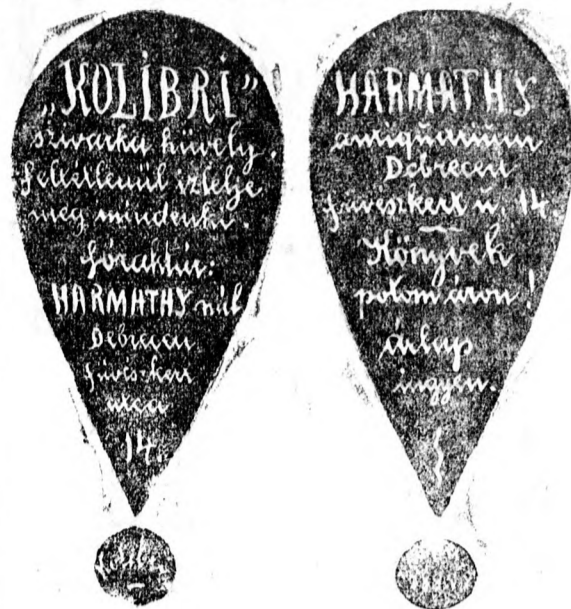 „KOLIBRI”
szivarka hüvely.
Feltétlenül izlelje
meg mindenki.
Főraktár:
HARMATHY nál
Debrecen
Füvészkert
utca
14.
HARMATHY
antiquarium
Debrecen
Füvészkert u. 14.
Könyvek
potom áron!
Árlap
ingyen.